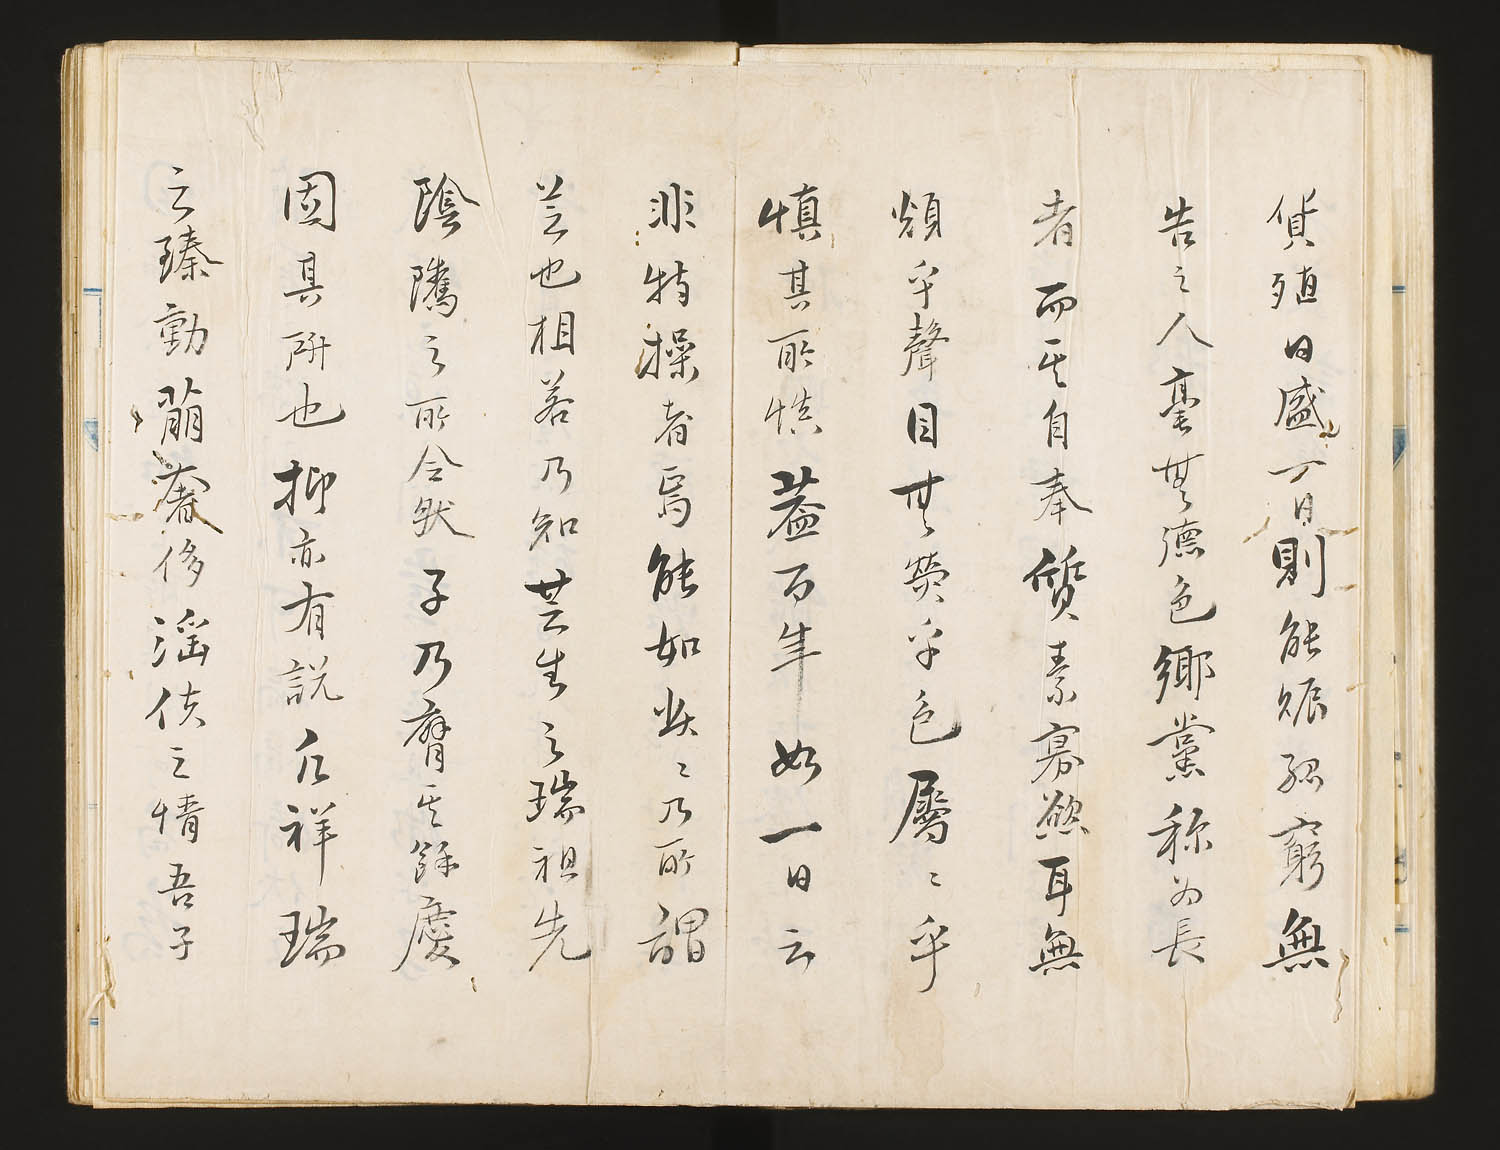 貨殖日盛一日則能賑孤窮無
告之人毫無德色鄉黨称為長
者而其自奉質素寡慾耳無
煩乎聲目無熒乎色屬〻乎
慎其所慎葢百年如一日云
非特操者焉能如此〻乃所謂
芝也相若乃知芸生之瑞祖先
陰隲之所令然子乃膺其餘慶
固其所也抑亦有説凡祥瑞
之臻動萠奢侈滛佚之情吾子